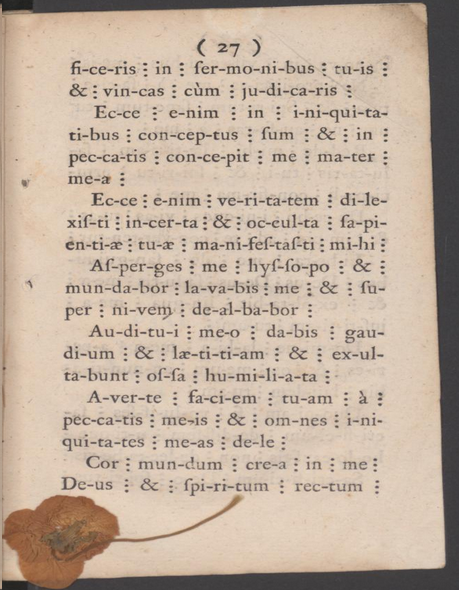 ( 27 )
fi-ce-ris ⋮ in ⋮ ſer-mo-ni-bus ⋮ tu-is ⋮
& ⋮ vin-cas ⋮ cùm ⋮ ju-di-ca-ris ⋮
Ec-ce ⋮ e-nim ⋮ in ⋮ i-ni-qui-ta-
ti-bus ⋮ con-cep-tus ⋮ ſum ⋮ & ⋮ in ⋮
pec-ca-tis ⋮ con-ce-pit ⋮ me ⋮ ma-ter ⋮
me-a ⋮
Ec-ce ⋮ e-nim ⋮ ve-ri-ta-tem ⋮ di-le-
xiſ-ti ⋮ in-cer-ta ⋮ & ⋮ oc-cul-ta ⋮ ſa-pi-
en-ti-æ ⋮ tu-æ ⋮ ma-ni-feſ-taſ-ti ⋮ mi-hi ⋮
Aſ-per-ges ⋮ me ⋮ hyſ-ſo-po ⋮ & ⋮
mun-da-bor ⋮ la-va-bis ⋮ me ⋮ & ⋮ ſu-
per ⋮ ni-vem ⋮ de-al-ba-bor ⋮
Au-di-tu-i ⋮ me-o ⋮ da-bis ⋮ gau-
di-um ⋮ & ⋮ læ-ti-ti-am ⋮ & ⋮ ex-ul-
ta-bunt ⋮ oſ-ſa ⋮ hu-mi-li-a-ta ⋮
A-ver-te ⋮ fa-ci-em ⋮ tu-am ⋮ à ⋮
pec-ca-tis ⋮ me-is ⋮ & ⋮ om-nes ⋮ i-ni-
qui-ta-tes ⋮ me-as ⋮ de-le ⋮
Cor ⋮ mun-dum ⋮ cre-a ⋮ in ⋮ me ⋮
De-us ⋮ & ⋮ ſpi-ri-tum ⋮ rec-tum ⋮